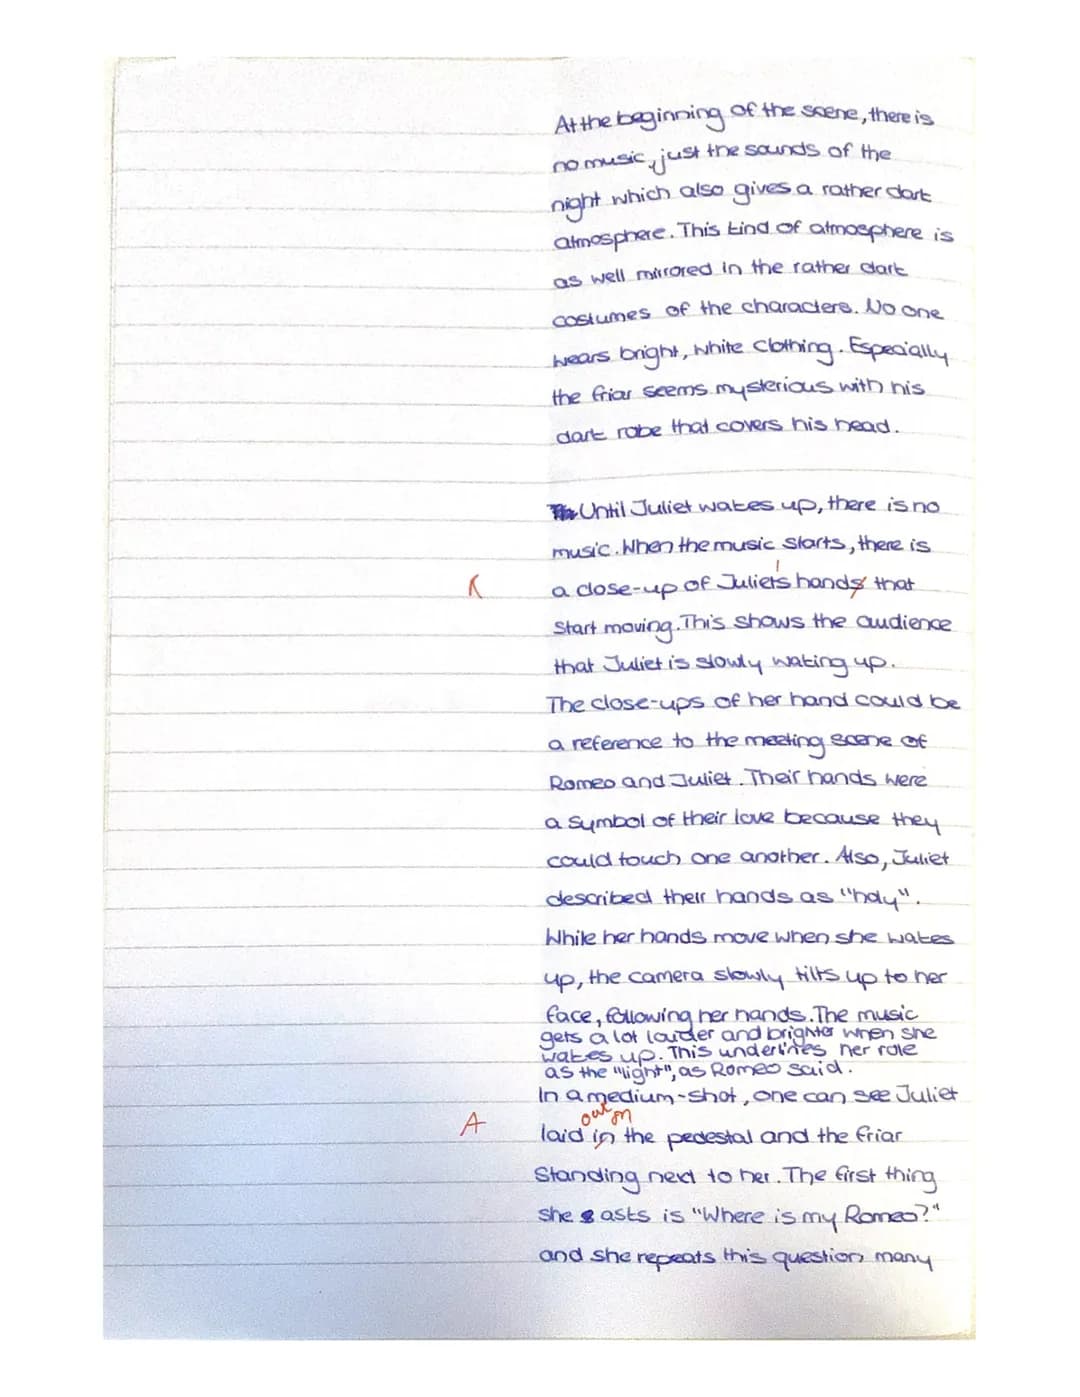 At the beginning of the scene, there is
no music, just the sounds of the
night which also gives a rather dark
atmosphere. This kind of atmosphere is
as well mirrored in the rather dark
costumes of the characters. No one
wears bright, white clothing. Especially
the friar seems mysterious with his
dark robe that covers his head.
Until Juliet wakes up, there is no
music. When the music starts, there is
R a close-up of Juliet's hands that
start moving. This shows the audience
that Juliet is slowly waking up.
The close-ups of her hand could be
a reference to the meeting scene of
Romeo and Juliet. Their hands were
a symbol of their love because they
could touch one another. Also, Juliet
described their hands as "holy".
While her hands move when she wakes
up, the camera slowly tilts up to her
face, following her hands. The music
gets a lot louder and brighter when she
wakes up. This underlines her role
as the "light", as Romeo said.
In a medium-shot, one can see Juliet
out on
A laid in the pedestal and the friar
standing next to her. The first thing
she asks is "Where is my Romeo?"
and she repeats this question many